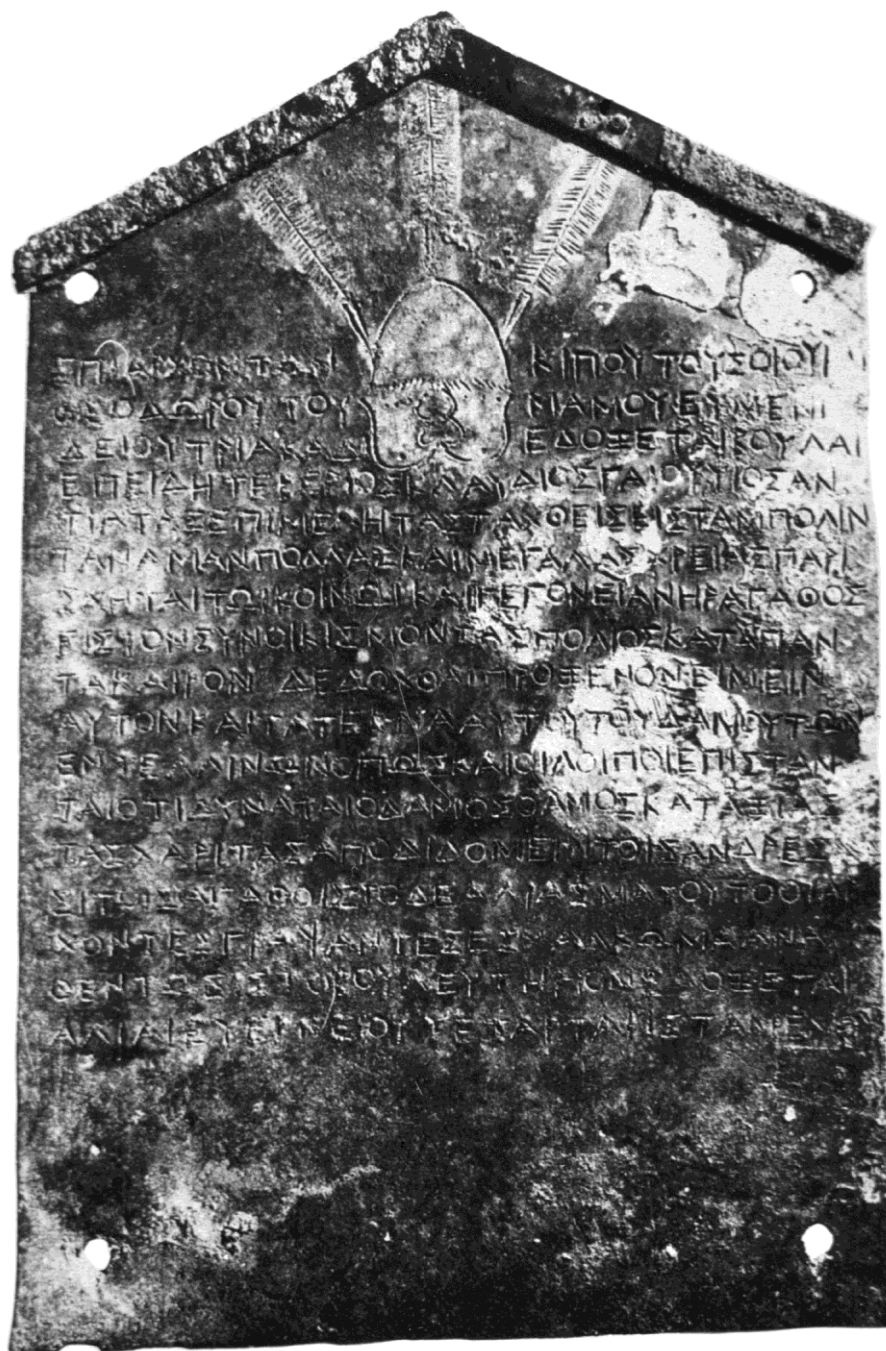 ΕΠΙ ΑΡΧΟΝΤΩΝ ΚΙΠΟΥ ΤΟΥ
ΘΕΟΔΩΡΟΥ ΤΟΥ ΜΑΜΟΥ ΕΥΜΕΝΙ
ΔΕΙΟΥ ΤΡΙΑΚΑΔΙ ΕΔΟΞΕ ΤΑΙ ΒΟΥΛΑΙ
ΕΠΕΙΔΗ ΤΕΒΕΡΙΟΣ ΚΛΑΥΔΙΟΣ ΓΑΙΟΥ ΥΙΟΣ ΑΝ
ΤΙΑΤΑΣ ΕΠΙΜΕΛΗΤΑΣ ΣΤΑΘΕΙΣ ΕΙΣ ΤΑΜ ΠΟΛΙΝ
ΤΑΝ ΑΜΑΝ ΠΟΛΛΑΣ ΚΑΙ ΜΕΓΑΛΑΣ ΧΡΕΙΑΣ ΠΑΡΙ
ΣΧΗΤΑΙ ΤΩΙ ΚΟΙΝΩΙ ΚΑΙ ΓΕΓΟΝΕΙ ΑΝΗΡ ΑΓΑΘΟΣ
ΕΙΣ ΤΟΝ ΣΥΝΟΙΚΙΣΜΟΝ ΤΑΣ ΠΟΛΙΟΣ ΚΑΤΑ ΠΑΝ
ΤΑ ΚΑΙΡΟΝ ΔΕΔΟΧΘΑΙ ΠΡΟΞΕΝΟΝ ΕΙΜΕΙΝ
ΑΥΤΟΝ ΚΑΙ ΤΑ ΤΕΚΝΑ ΑΥΤΟΥ ΤΟΥ ΔΑΜΟΥ ΤΩΝ
ΕΝΤΕΛΛΙΝΩΝ ΟΠΩΣ ΚΑΙ ΟΙ ΛΟΙΠΟΙ ΕΠΙΣΤΑΝ
ΤΑΙ ΟΤΙ ΔΥΝΑΤΑΙ Ο ΔΑΜΟΣ Ο ΑΜΟΣ ΚΑΤΑΞΙΑΣ
ΤΑΣ ΧΑΡΙΤΑΣ ΑΠΟΔΙΔΟΜΕΝ ΤΟΙΣ ΑΝΔΡΕΣ
ΣΙ ΤΟΙΣ ΑΓΑΘΟΙΣ ΤΟ ΔΕ ΑΛΙΑΣΜΑ ΤΟΥΤΟ ΟΙ ΑΡ
ΧΟΝΤΕΣ ΓΡΑΨΑΝΤΕΣ ΕΣ ΧΑΛΚΩΜΑ ΑΝΑ
ΘΕΝΤΩ ΕΣ ΤΟ ΒΟΥΛΕΥΤΗΡΙΟΝ ΕΔΟΞΕ ΤΑΙ
ΑΛΙΑΙ